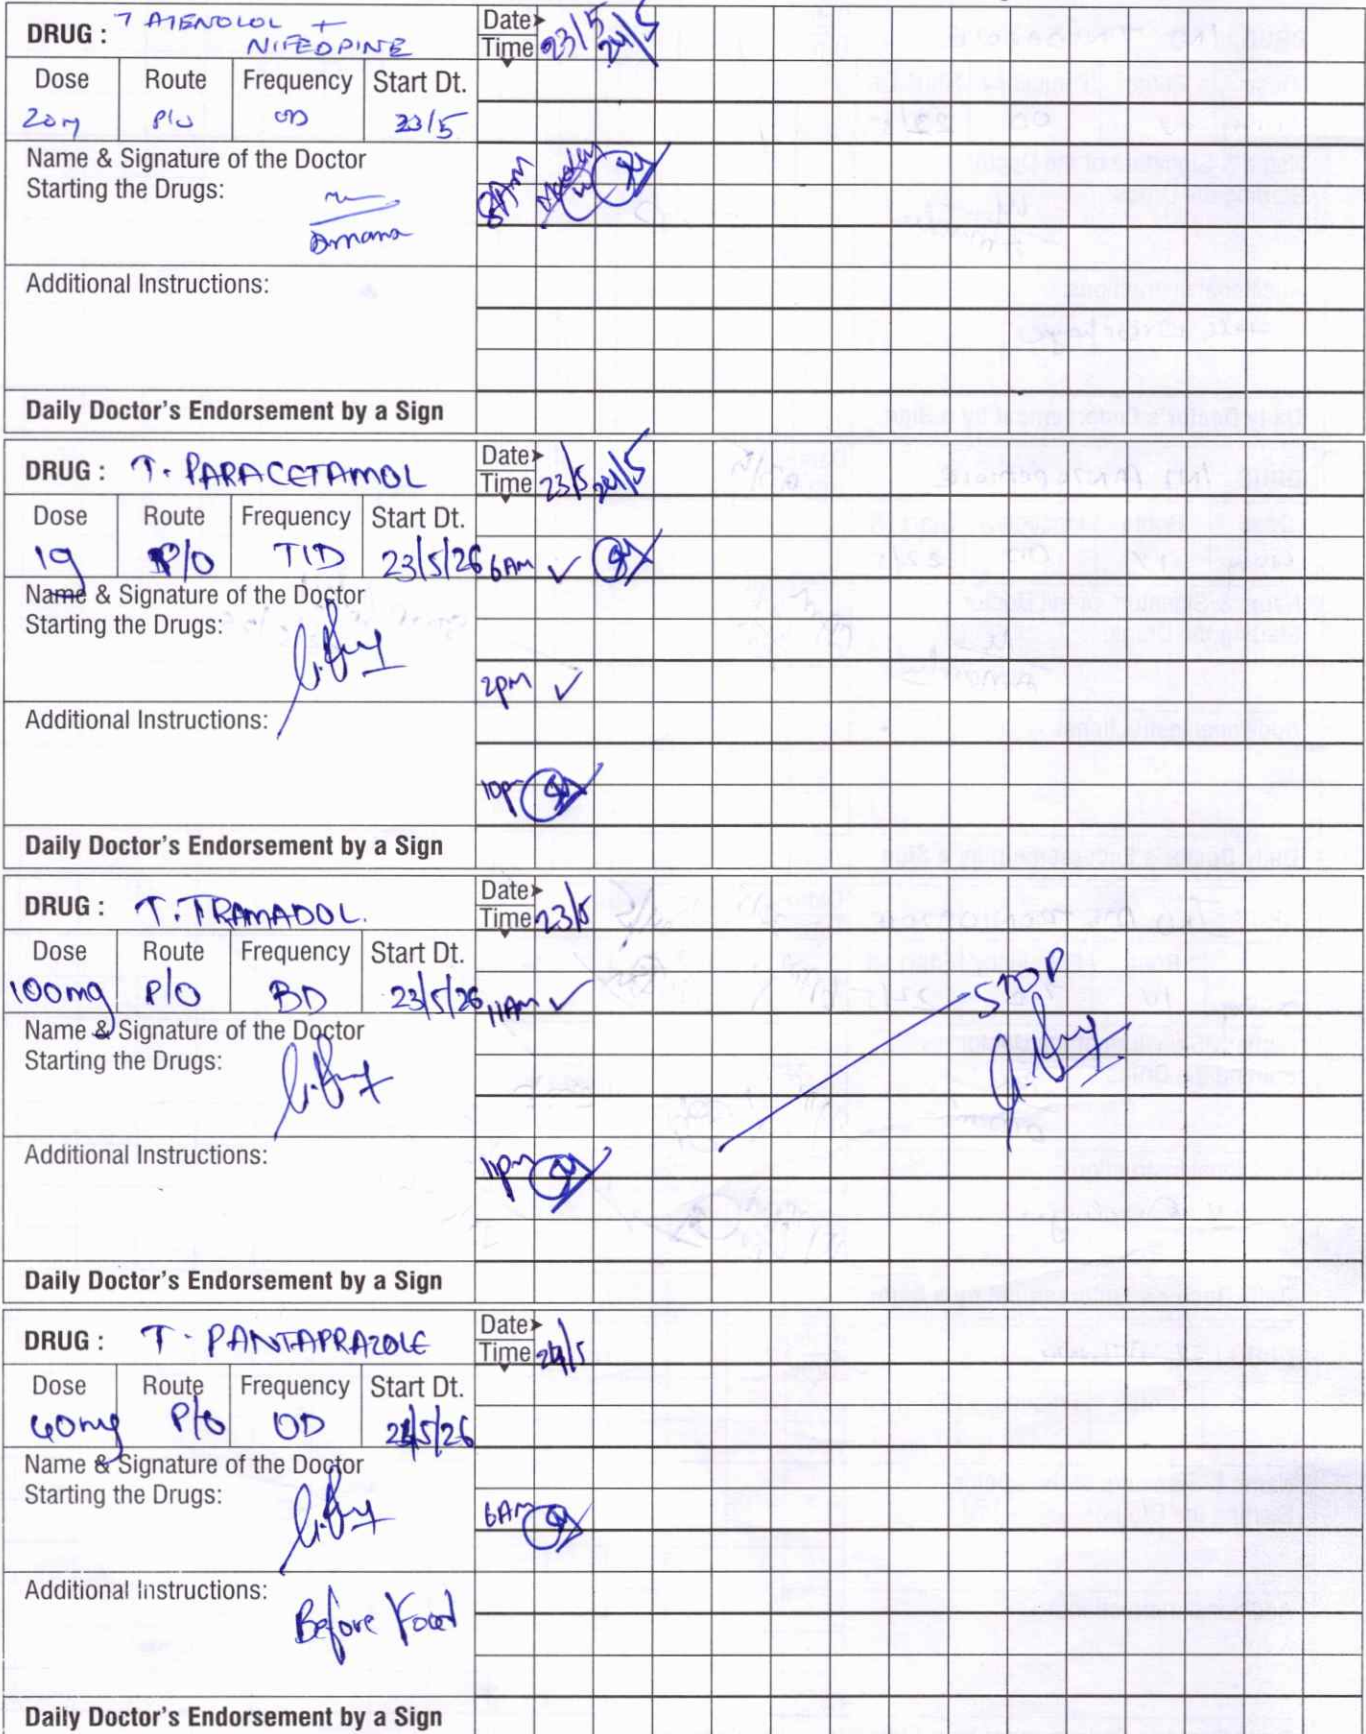 DRUG : T ATENOLOL +
NIFEDPINE
Date
Time 23/5 24/5
Dose Route Frequency Start Dt.
20m P/O OD 23/5
Name & Signature of the Doctor
Starting the Drugs:
8AM
Additional Instructions:
Daily Doctor's Endorsement by a Sign
DRUG : T. PARACETAMOL
Date
Time 23/5 24/5
Dose Route Frequency Start Dt.
1g P/O TID 23/5/26 6AM ✓
Name & Signature of the Doctor
Starting the Drugs:
2pm ✓
Additional Instructions:
10p
Daily Doctor's Endorsement by a Sign
DRUG : T. TRAMADOL.
Date
Time 23/5
Dose Route Frequency Start Dt.
100mg P/O BD 23/5/26 11AM ✓
STOP
Name & Signature of the Doctor
Starting the Drugs:
Additional Instructions:
11pm
Daily Doctor's Endorsement by a Sign
DRUG : T. PANTAPRAZOLE
Date
Time 24/5
Dose Route Frequency Start Dt.
40mg P/O OD 24/5/26
Name & Signature of the Doctor
Starting the Drugs:
6AM
Additional Instructions:
Before Food
Daily Doctor's Endorsement by a Sign